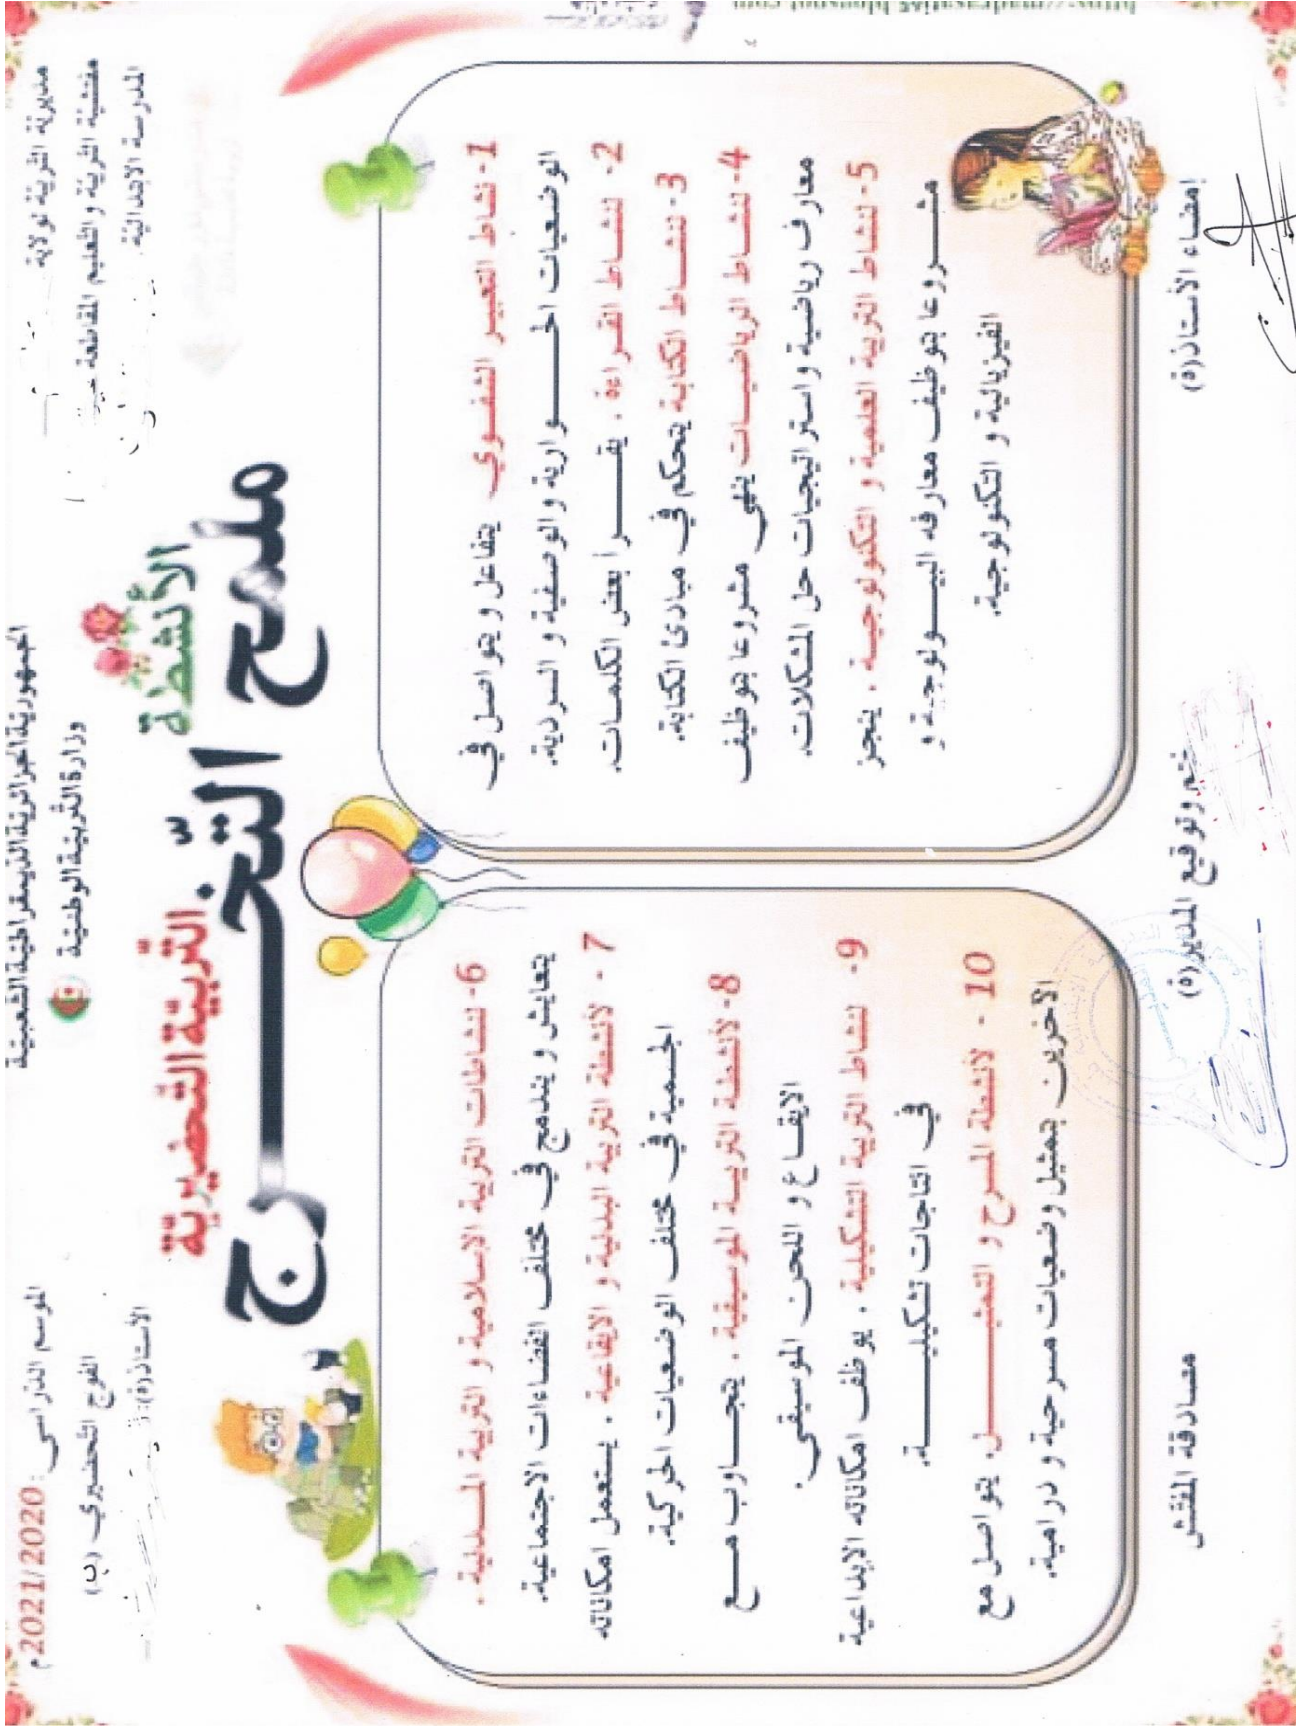 الجمهوريّة الجزائريّة الديمقراطيّة الشعبيّة
وزارة التّربيّة الوطنيّة
مديريّة التّربيّة لولاية
مفتشيّة التّربيّة والتّعليم المقاطعة
المدرسة الابتدائيّة
الموسم الدّراسي: 2021/2020م
الفوج التّحضيري (ب)
الأستاذ(ة):
الأنشطة
التّربيّة التّحضيريّة
ملمح التّخـــرج
1- نشاط التعبير الشفـوي يتفاعل و يتواصل في
الوضعيات الحـــوارية والوصفية و السردية.
2- لنشــاط القـراءة . يقـــرأ بعض الكلمـات.
3- لنشــاط الكتابة يتحكم في مبادئ الكتابة.
4- لنشـاط الرياضيـــات ينهي مشروعا بتوظيف
معارف رياضية واستراتيجيات حل المشكلات.
5- لنشاط التربية العلمية و التكنولوجيـــة . ينجز
مشـــروعا بتوظيف معارفه البيـــولوجية و
الفيزيائية و التكنولوجية.
6- لنشاطات التربية الإسلامية و التربية المــدنية .
يتعايش و يندمج في مختلف الفضاءات الاجتماعية.
7 - لأنشطة التربية البدنية و الايقاعية . يستعمل امكاناته
الجسمية في مختلف الوضعيات الحركية.
8- لأنشطة التربيــة الموسيقية . يتجـــاوب مـــع
الايقـــاع و اللحن الموسيقي.
9- لنشاط التربية التشكيلية . يوظف امكاناته الابداعية
في انتاجات تشكيليـــــة.
10 - لأنشطة المسرح و التمثيـــــل. يتواصل مع
الآخرين بتمثيل وضعيات مسرحية و درامية.
إمضاء الأستاذ(ة)
ختم وتوقيع المدير(ة)
مصادقة المفتش